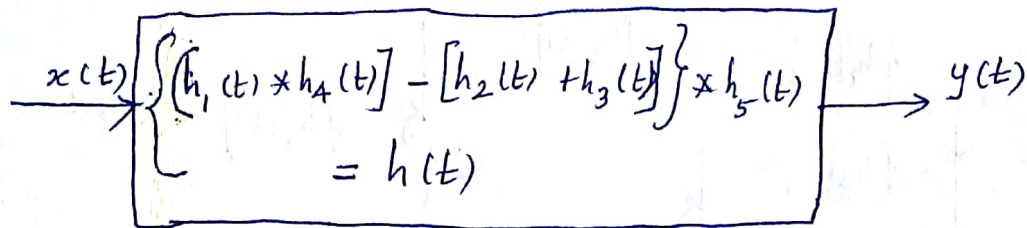 x(t) {[h₁(t) * h₄(t)] - [h₂(t) + h₃(t)]} * h₅(t) y(t)
= h(t)